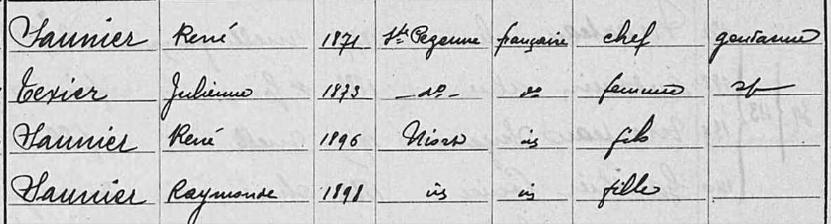 Saunier René 1871 Ste Pezenne française chef gendarme
Texier Julienne 1873 — do — do femme sp
Saunier René 1896 Niort id fils
Saunier Raymonde 1898 id id fille